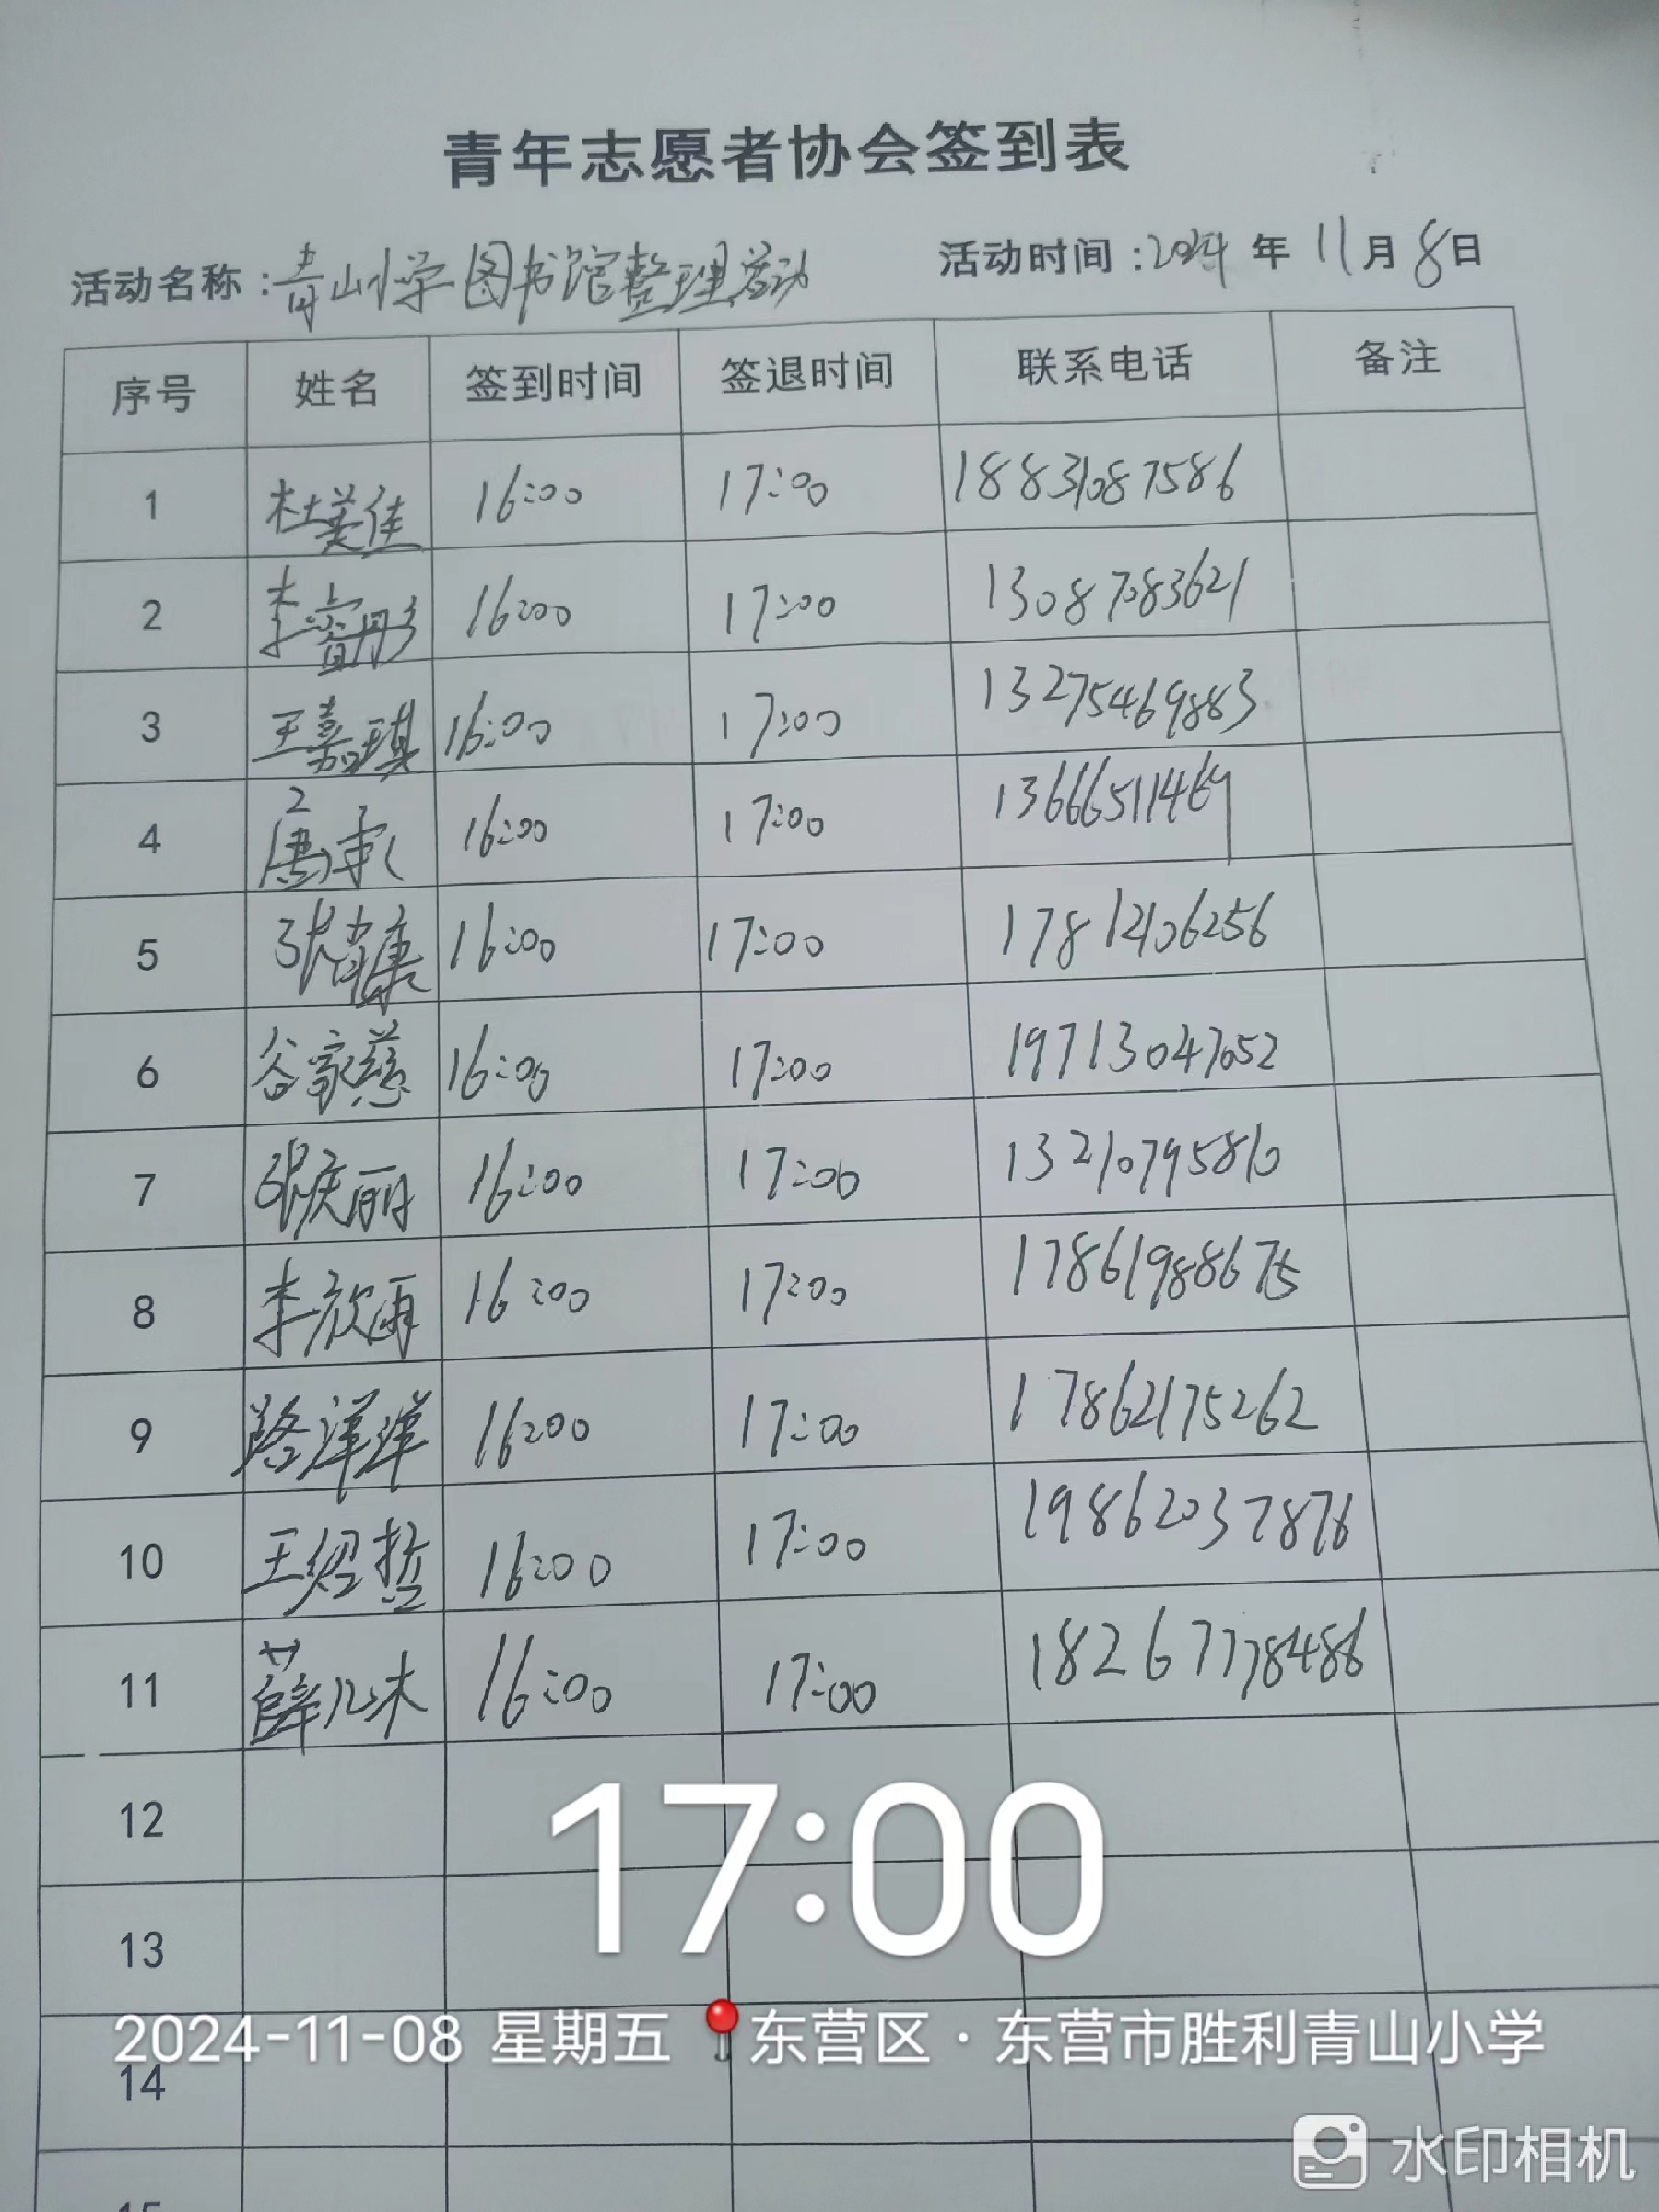 青年志愿者协会签到表
活动名称:青山小学图书馆整理活动 活动时间:2024年11月8日
序号 姓名 签到时间 签退时间 联系电话 备注
1 杜美佳 16:00 17:00 18831087586
2 李睿彤 16:00 17:00 13087083621
3 王嘉琪 16:00 17:00 13275469883
4 16:00 17:00 13666511469
5 张肖康 16:00 17:00 17812106256
6 谷家慈 16:00 17:00 19713047052
7 16:00 17:00 13210795810
8 李欣雨 16:00 17:00 17861988675
9 路洋洋 16:00 17:00 17862175262
10 王绍哲 16:00 17:00 19862037876
11 薛几木 16:00 17:00 18267778486
12
17:00
13
2024-11-08 星期五 东营区·东营市胜利青山小学
14
水印相机
15